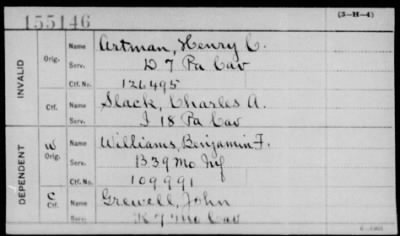 155146
(3-H-4)
INVALID
Orig.
Name Artman, Henry C.
Serv. D 7 Pa Cav
Ctf. No. 126495
Ctf.
Name Slack, Charles A.
I 18 Pa Cav
DEPENDENT
W
Orig.
Name Williams, Benjamin F.
Serv. B 39 Mo Inf
Ctf. No. 109991
C
Ctf.
Name Grewell, John
Serv. K 7 Mo Cav